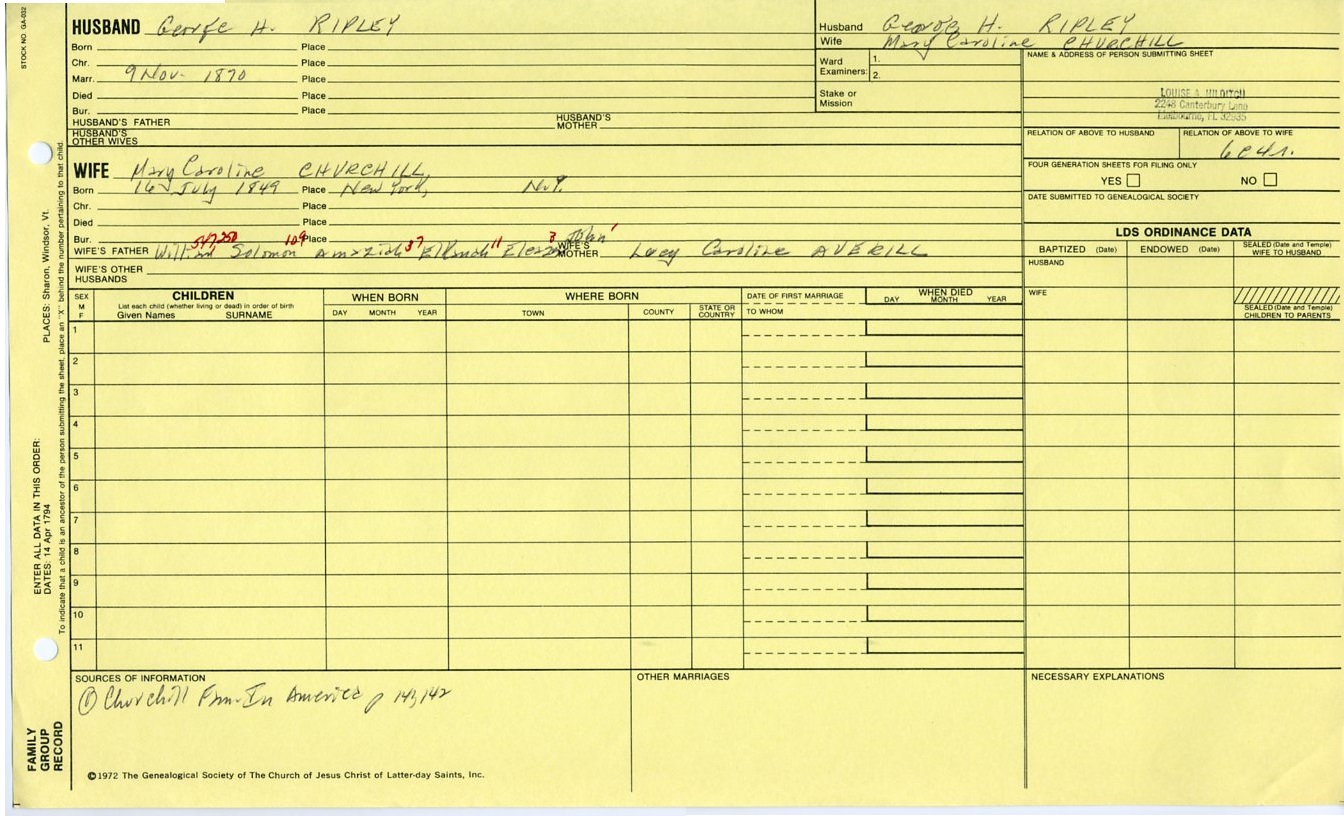 STOCK NO. GA-032
HUSBAND George H. RIPLEY
Born Place
Chr. Place
Marr. 9 Nov. 1870 Place
Died Place
Bur. Place
HUSBAND'S FATHER HUSBAND'S MOTHER
HUSBAND'S OTHER WIVES
Husband George H. RIPLEY
Wife Mary Caroline CHURCHILL
Ward Examiners: 1.
2.
Stake or Mission
NAME & ADDRESS OF PERSON SUBMITTING SHEET
LOUISE HILDITCH
2248 Canterbury Lane
Melbourne, FL 32935
RELATION OF ABOVE TO HUSBAND RELATION OF ABOVE TO WIFE
6c4r.
FOUR GENERATION SHEETS FOR FILING ONLY
YES NO
DATE SUBMITTED TO GENEALOGICAL SOCIETY
WIFE Mary Caroline CHURCHILL,
Born 16 July 1849 Place New York, N.Y.
Chr. Place
Died Place
Bur. Place
WIFE'S FATHER William 547250 Solomon 109 Amaziah 37 Elkanah 11 Eleazer 3 John 1 WIFE'S MOTHER Lucy Caroline AVERILL
WIFE'S OTHER HUSBANDS
LDS ORDINANCE DATA
BAPTIZED (Date) ENDOWED (Date) SEALED (Date and Temple) WIFE TO HUSBAND
HUSBAND
WIFE
SEALED (Date and Temple) CHILDREN TO PARENTS
SEX M F CHILDREN List each child (whether living or dead) in order of birth Given Names SURNAME
WHEN BORN DAY MONTH YEAR
WHERE BORN TOWN COUNTY STATE OR COUNTRY
DATE OF FIRST MARRIAGE TO WHOM
WHEN DIED DAY MONTH YEAR
1
2
3
4
5
6
7
8
9
10
11
SOURCES OF INFORMATION
① Churchill Fam. In America p 141,142
OTHER MARRIAGES
NECESSARY EXPLANATIONS
©1972 The Genealogical Society of The Church of Jesus Christ of Latter-day Saints, Inc.
FAMILY GROUP RECORD
ENTER ALL DATA IN THIS ORDER:
DATES: 14 Apr 1794
PLACES: Sharon, Windsor, Vt.
To indicate that a child is an ancestor of the person submitting the sheet, place an "X" behind the number pertaining to that child.